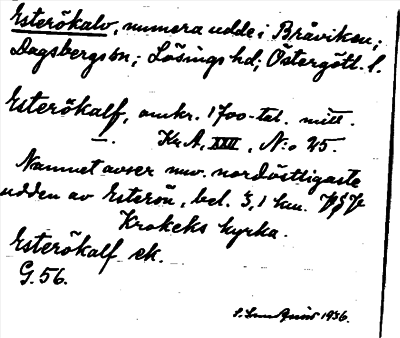 Esterökalv, numera udde i Bråviken;
Dagsbergs sn; Lösings hd; Östergötl. l.
Esterökalf, omkr. 1700-tal. mitt.
–. Kr. A, XXII, N:o 45.
Namnet avser nuv. nordöstligaste
udden av Esterön, bel. 3,1 km.
Krokeks kyrka.
Esterökalf ek.
G. 56.
1936.